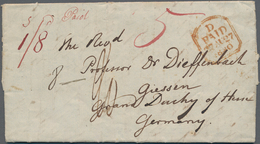 s d Paid
1/8 5
PAID
The Revd
Professor Dr Dieffenbach
Giessen
Grand Duchy of Hesse
Germany.